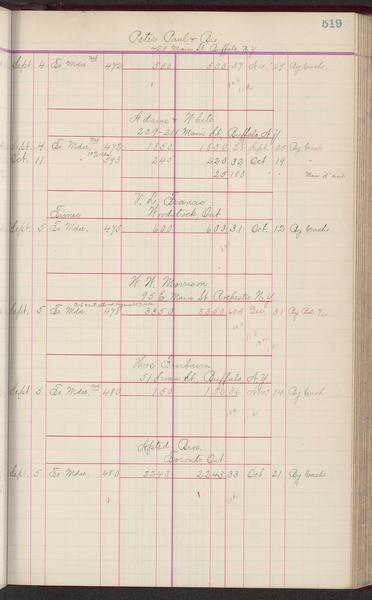 519
Peter Paul & Bro,
420 Main St. Buffalo N.Y.
Sept. 4 To Mdse. Net 472 500 500 37 Nov. 19 By Cash
Adams & White
209-211 Main St. Buffalo N.Y.
Sept. 4 To Mdse. Net 472 1850 1850 28 Sept. 25 By Cash
Oct. 11 " 593 245 220 32 Oct. 19 "
25 188 " "
V. L. Francis
Times Woodstock, Ont
Sept. 5 To Mdse. 475 600 600 31 Oct. 12 By Cash
W. W. Morrison
95 E. Main St. Rochester N.Y.
Sept. 5 To Mdse. 478 3350 3350 Dec. 31 By
Fairbairn
51 St., Buffalo N.Y.
Sept. 5 To Mdse. Net 480 150 150 36 Nov. 14 By Cash
Apted Bros.
Toronto Ont
Sept. 5 To Mdse. 480 2243 2243 33 Oct. 21 By Cash